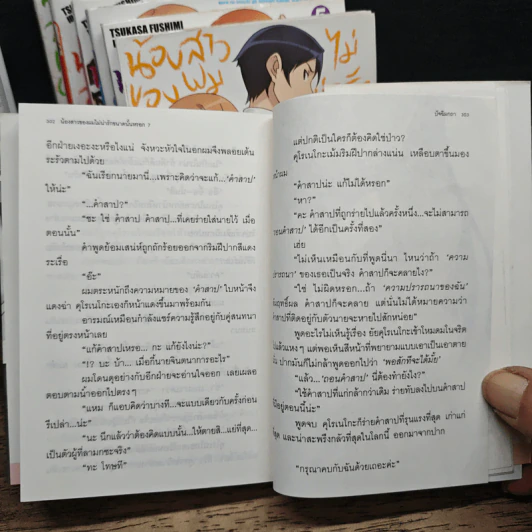 TSUKASA FUSHIMI
TSUKASA FUSHIMI
5
น้องสาว
ของผม
ไม่
น้องสาวของผมไม่น่ารักขนาดนั้นหรอก 7
อีกฝ่ายเงอะงะหรือไงแน่ จังหวะหัวใจในอกผมจึงพลอยเต้น
ระรัวตามไปด้วย
"ฉันเรียกนายมานี่...เพราะคิดว่าจะแก้...'คำสาป'
ให้น่ะ"
"...คำสาป?"
"ชะ ใช่ คำสาป คำสาป...ที่เคยร่ายใส่นายไว้ เมื่อ
ตอนนั้น"
คำพูดย้อมเสน่ห์ถูกถักร้อยออกจากริมฝีปากสีแดง
ระเรื่อ
"อ๊ะ"
ผมตระหนักถึงความหมายของ 'คำสาป' ใบหน้าจึง
แดงฉ่า คุโรเนโกะเองก็หน้าแดงขึ้นมาพร้อมกัน
อารมณ์เหมือนกำลังแชร์ความรู้สึกอยู่กับคู่สนทนา
ที่อยู่ตรงหน้าเลย
"แก้คำสาปเหรอ... กะ แก้ยังไงน่ะ?"
"!? บะ บ้า... เมื่อกี้นายจินตนาการอะไร"
ผมโดนคุยอย่างกับอีกฝ่ายจะอ่านใจออก เลยเผลอ
ตอบตามน้ำออกไปตรงๆ
"แหม ก็แอบคิดว่าบางที...จะแบบเดียวกับครั้งก่อน
รึเปล่า...น่ะ"
"นะ นึกแล้วว่าต้องคิดแบบนั้น...ให้ตายสิ...แย่ที่สุด...
เป็นตัวผู้ที่ลามกซะจริง"
"ทะ โทษที"
ปัจฉิมกถา
แต่ปกติเป็นใครก็ต้องคิดใช่ป่าว?
คุโรเนโกะเม้มริมฝีปากล่างแน่น เหลือบตาขึ้นมอง
"คำสาปน่ะ แก้ไม่ได้หรอก"
"หา?"
"คะ คำสาปที่ถูกร่ายไปแล้วครั้งหนึ่ง...จะไม่สามารถ
'ถอนคำสาป' ได้อีกเป็นครั้งที่สอง"
เฮ่ย
"ไม่เห็นเหมือนกับที่พูดนี่นา ไหนว่าถ้า 'ความ
ปรารถนา' ของเธอเป็นจริง คำสาปก็จะคลายไง?"
"ใช่ ไม่ผิดหรอก...ถ้า 'ความปรารถนาของฉัน'
สัมฤทธิ์ผล คำสาปก็จะคลาย แต่นั่นไม่ได้หมายความว่า
คำสาปที่ติดอยู่กับตัวนายจะหายไปสักหน่อย"
พูดอะไรไม่เห็นรู้เรื่อง ยัยคุโรเนโกะเข้าโหมดมโนจริต
แต่พอเห็นสีหน้าที่พยายามแบบเอาเป็นเอาตาย
ปากมันก็ไม่กล้าพูดออกไปว่า 'พอสักทีจะได้มั้ย'
"แล้ว...'ถอนคำสาป' นี่ต้องทำยังไง?"
"ใช้คำสาปที่แก่กล้ากว่าเดิม ร่ายทับลงไปบนคำสาป
ที่มีอยู่ตอนนี้น่ะ"
พูดจบ คุโรเนโกะก็ร่ายคำสาปที่รุนแรงที่สุด เก่าแก่
ที่สุด และน่าสะพรึงกลัวที่สุดในโลกนี้ ออกมาจากปาก
"กรุณาคบกับฉันด้วยเถอะค่ะ"